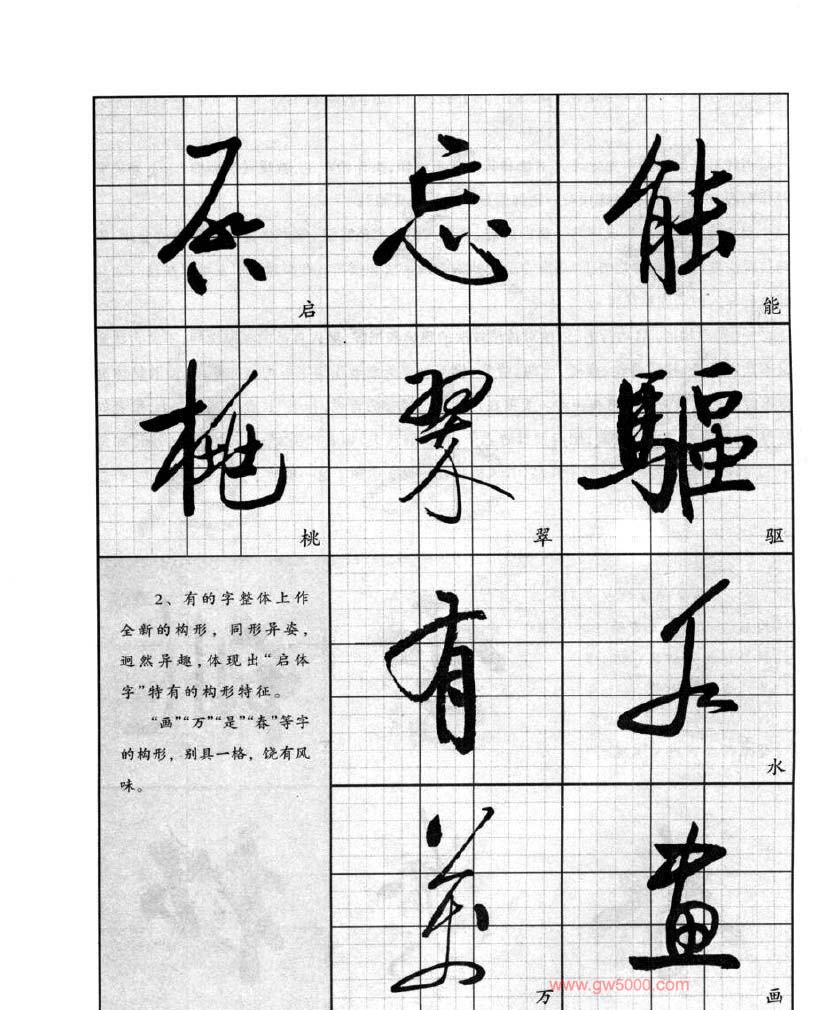 启 忘 能
启 能
桃 翠 驱
桃 翠 驱
2、有的字整体上作
全新的构形，同形异姿，
迥然异趣，体现出“启体
字”特有的构形特征。
“画”“万”“是”“春”等字
的构形，别具一格，饶有风
味。
有 水
水
萬 畫
万 画
www.gw5000.com